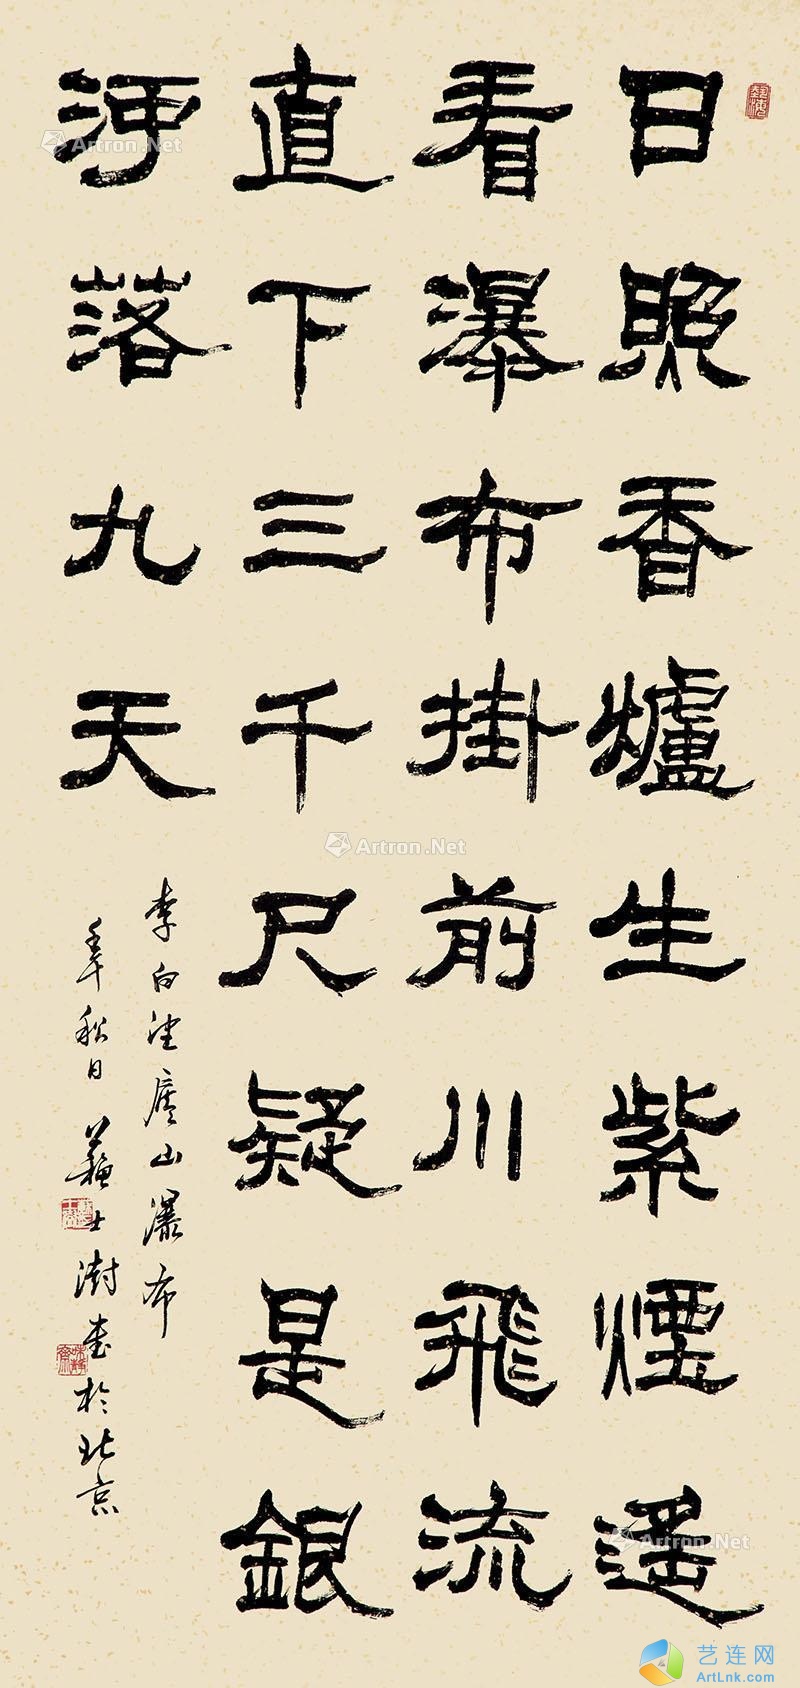 日照香爐生紫煙遙
看瀑布掛前川飛流
直下三千尺疑是銀
河落九天
李白望廬山瀑布
壬午秋日蘇士澍書於北京
Artron.Net
Artron.Net
Artron.Net
艺连网
ArtLnk.com